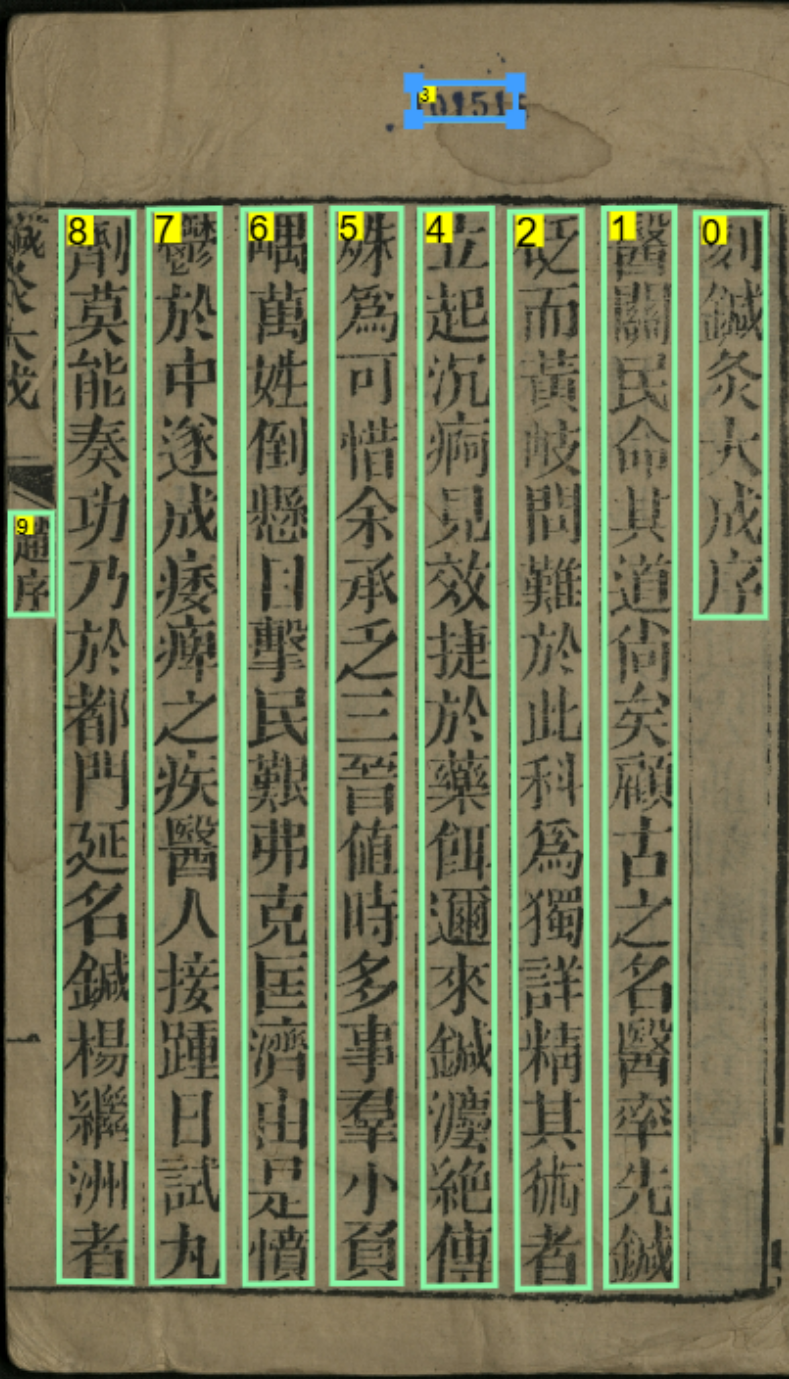 0151
刻鍼灸大成序
醫關民命其道尚矣顧古之名醫率先鍼
砭而黃岐問難於此科爲獨詳精其術者
立起沉痾見效捷於藥餌邇來鍼灋絶傳
殊爲可惜余承乏三晉值時多事羣小負
嵎萬姓倒懸目擊民艱弗克匡濟由是憤
鬱於中遂成痿痺之疾醫人接踵日試丸
劑莫能奏功乃於都門延名鍼楊繼洲者
鍼灸大成
趙序
一